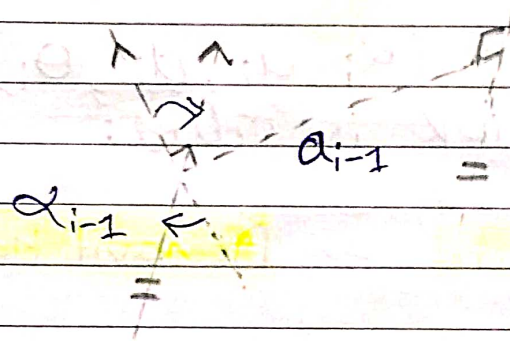 a_{i-1}
α_{i-1}